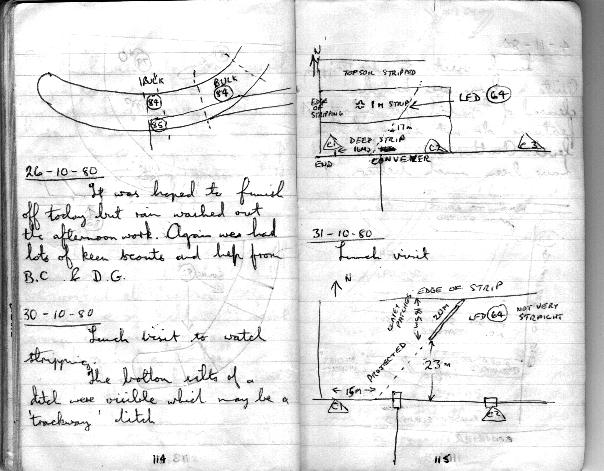 BULK
BULK
84
84
85
26-10-80
It was hoped to finish
off today but rain washed out
the afternoon work. Again we had
lots of keen scouts and help from
B.C & D.G.
30-10-80
Lunch visit to watch
stripping.
The bottom silts of a
ditch were visible which may be a
'trackway' ditch
114
N
TOPSOIL STRIPPED
EDGE
OF
STRIPPING
8M STRIP
LFD 64
17m
C1
DEEP STRIP
C2
C3
16M
END
CONVEYER
31-10-80
Lunch visit
N
EDGE OF STRIP
PATCHES
20m
LFD 64
NOT VERY
STRAIGHT
PROJECTED
23m
15m
C1
C2
115